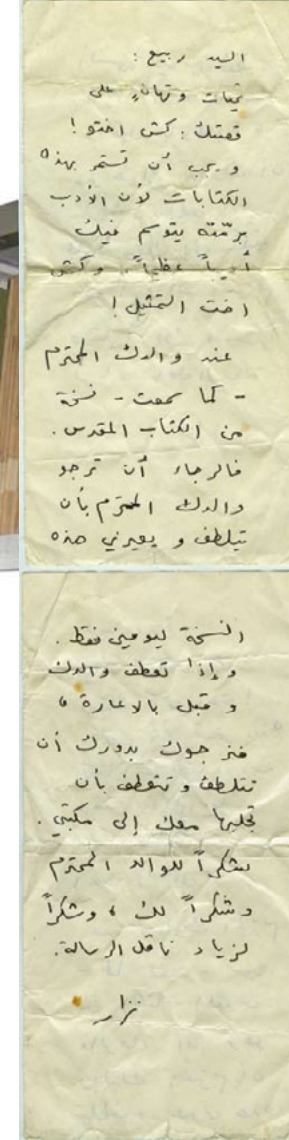 السيد ربيع :
تحيات وتهانٍ على
قصتك : كش اختو !
ويجب أن تستمر بهذه
الكتابات لأن الأدب
برمّته يتوسم فيك
أديباً عظيماً. وكش
اخت التمثيل !
عند والدك المحترم
- كما سمعت - نسخة
من الكتاب المقدس .
فالرجاء أن ترجو
والدك المحترم بأن
يتلطف و يعيرني هذه
النسخة ليومين فقط .
وإذا تعطف والدك
و قبل بالاعارة ،
فنرجوك بدورك أن
تتلطف و تتعطف بأن
تجلبها معك إلى مكتبي .
شكراً للوالد المحترم
وشكراً لك ، وشكراً
لزياد ناقل الرسالة .
نزار